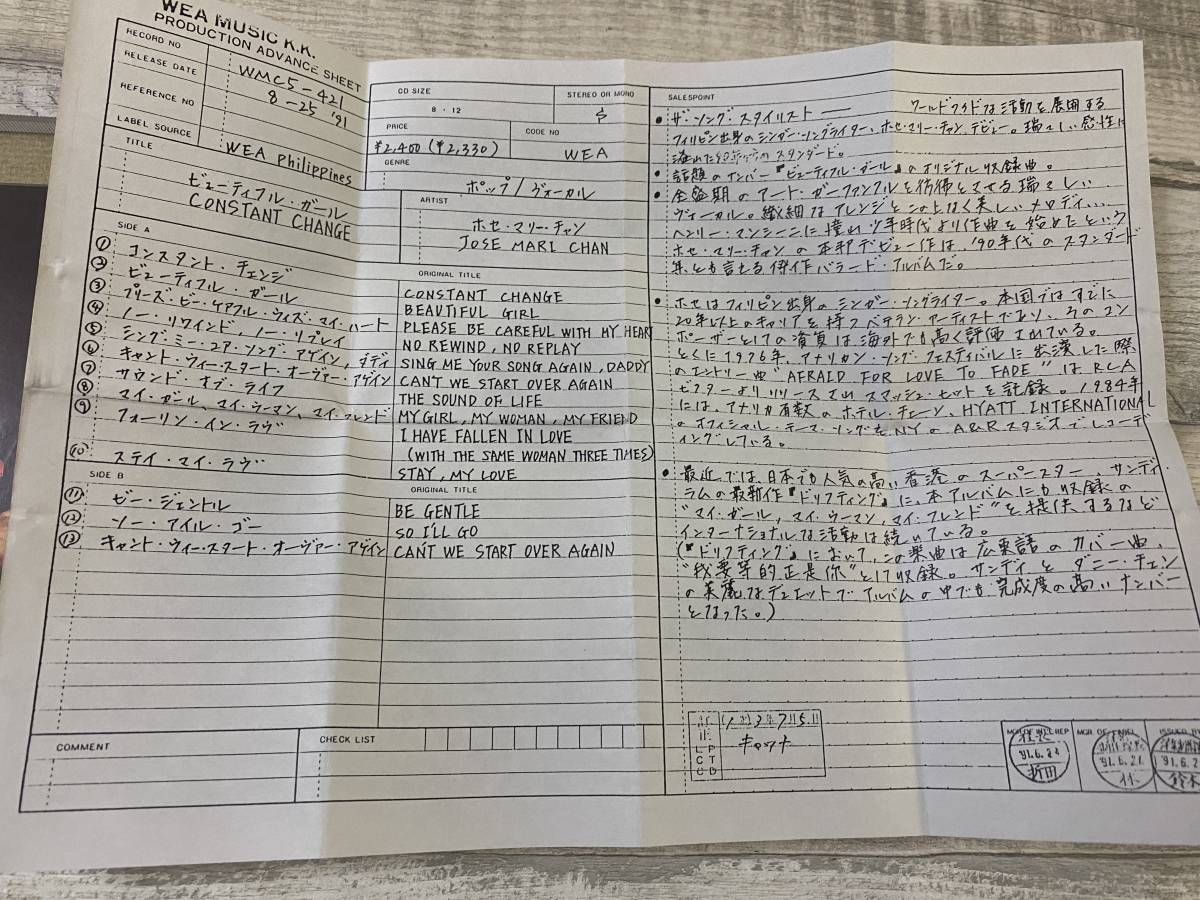 WEA MUSIC K.K.
PRODUCTION ADVANCE SHEET
RECORD NO
WMC5-421
RELEASE DATE
8-25 '91
REFERENCE NO
LABEL SOURCE
WEA Philippines
TITLE
ビューティフル・ガール
CONSTANT CHANGE
CD SIZE
8・12
STEREO OR MONO
PRICE
¥2,400(¥2,330)
CODE NO
WEA
GENRE
ポップ/ヴォーカル
ARTIST
ホセ・マリー・チャン
JOSE MARI CHAN
SIDE A
① コンスタント・チェンジ
② ビューティフル・ガール
③ プリーズ・ビー・ケアフル・ウィズ・マイ・ハート
④ ノー・リワインド、ノー・リプレイ
⑤ シング・ミー・ユア・ソング・アゲイン、ダディ
⑥ キャント・ウィー・スタート・オーヴァー・アゲイン
⑦ サウンド・オブ・ライフ
⑧ マイ・ガール、マイ・ウーマン、マイ・フレンド
⑨ フォーリン・イン・ラヴ
⑩ ステイ・マイ・ラヴ
ORIGINAL TITLE
CONSTANT CHANGE
BEAUTIFUL GIRL
PLEASE BE CAREFUL WITH MY HEART
NO REWIND, NO REPLAY
SING ME YOUR SONG AGAIN, DADDY
CAN'T WE START OVER AGAIN
THE SOUND OF LIFE
MY GIRL, MY WOMAN, MY FRIEND
I HAVE FALLEN IN LOVE
(WITH THE SAME WOMAN THREE TIMES)
STAY, MY LOVE
SIDE B
⑪ ビー・ジェントル
⑫ ソー・アイル・ゴー
⑬ キャント・ウィー・スタート・オーヴァー・アゲイン
ORIGINAL TITLE
BE GENTLE
SO I'LL GO
CAN'T WE START OVER AGAIN
COMMENT
CHECK LIST
SALESPOINT
● ザ・ソング・スタイリスト── ワールドワイドな活動を展開する
フィリピン出身のシンガー・ソングライター、ホセ・マリー・チャン、デビュー。瑞々しい感性に
スタンダード。
● 話題のナンバー『ビューティフル・ガール』のオリジナル収録曲。
● 全盛期のアート・ガーファンクルを彷彿とさせる瑞々しい
ヴォーカル。繊細なアレンジとこの上なく美しいメロディ…
ヘンリー・マンシーニに憧れ少年時代より作曲を始めたという
ホセ・マリー・チャンの本邦デビュー作は、'90年代のスタンダード
集とも言える傑作バラード・アルバムだ。
● ホセはフィリピン出身のシンガー・ソングライター。本国ではすでに
20年以上のキャリアを持つベテラン・アーティストであり、そのコン
ポーザーとしての資質は海外でも高く評価されている。
とくに1976年、アメリカン・ソング・フェスティバルに出演した際
のエントリー曲"AFRAID FOR LOVE TO FADE"はRCA
ビクターよりリリースされスマッシュ・ヒットを記録。1984年
には、アメリカ有数のホテル・チェーン、HYATT INTERNATIONAL
のオフィシャル・テーマ・ソングをNYのA&Rスタジオでレコーデ
ィングしている。
● 最近では、日本でも人気の高い香港のスーパースター、サンディ・
ラムの最新作『ドリフティング』に、本アルバムにも収録の
"マイ・ガール、マイ・ウーマン、マイ・フレンド"を提供するなど
インターナショナルな活動は続いている。
(『ドリフティング』において、この楽曲は広東語のカバー曲、
"我要等的正是你"として収録。サンディとダニー・チェン
の美麗なデュエットでアルバムの中でも完成度の高いナンバー
となった。)
MGR OF
'91.6.24
折田
MGR OF LABEL
'91.6.21
林
ISSUED BY
'91.6.2
鈴木